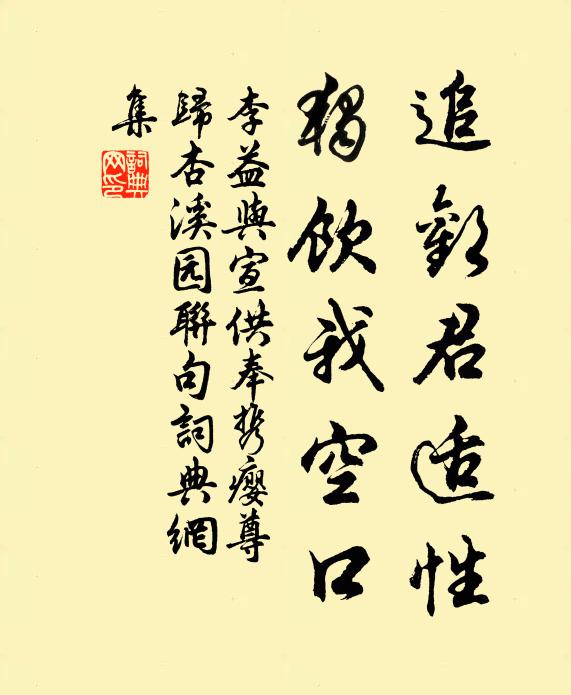 追歡君适性
獨飲我空口
李益與宣供奉携癭尊
歸杏溪园聯句詞典網
集
詞典網印